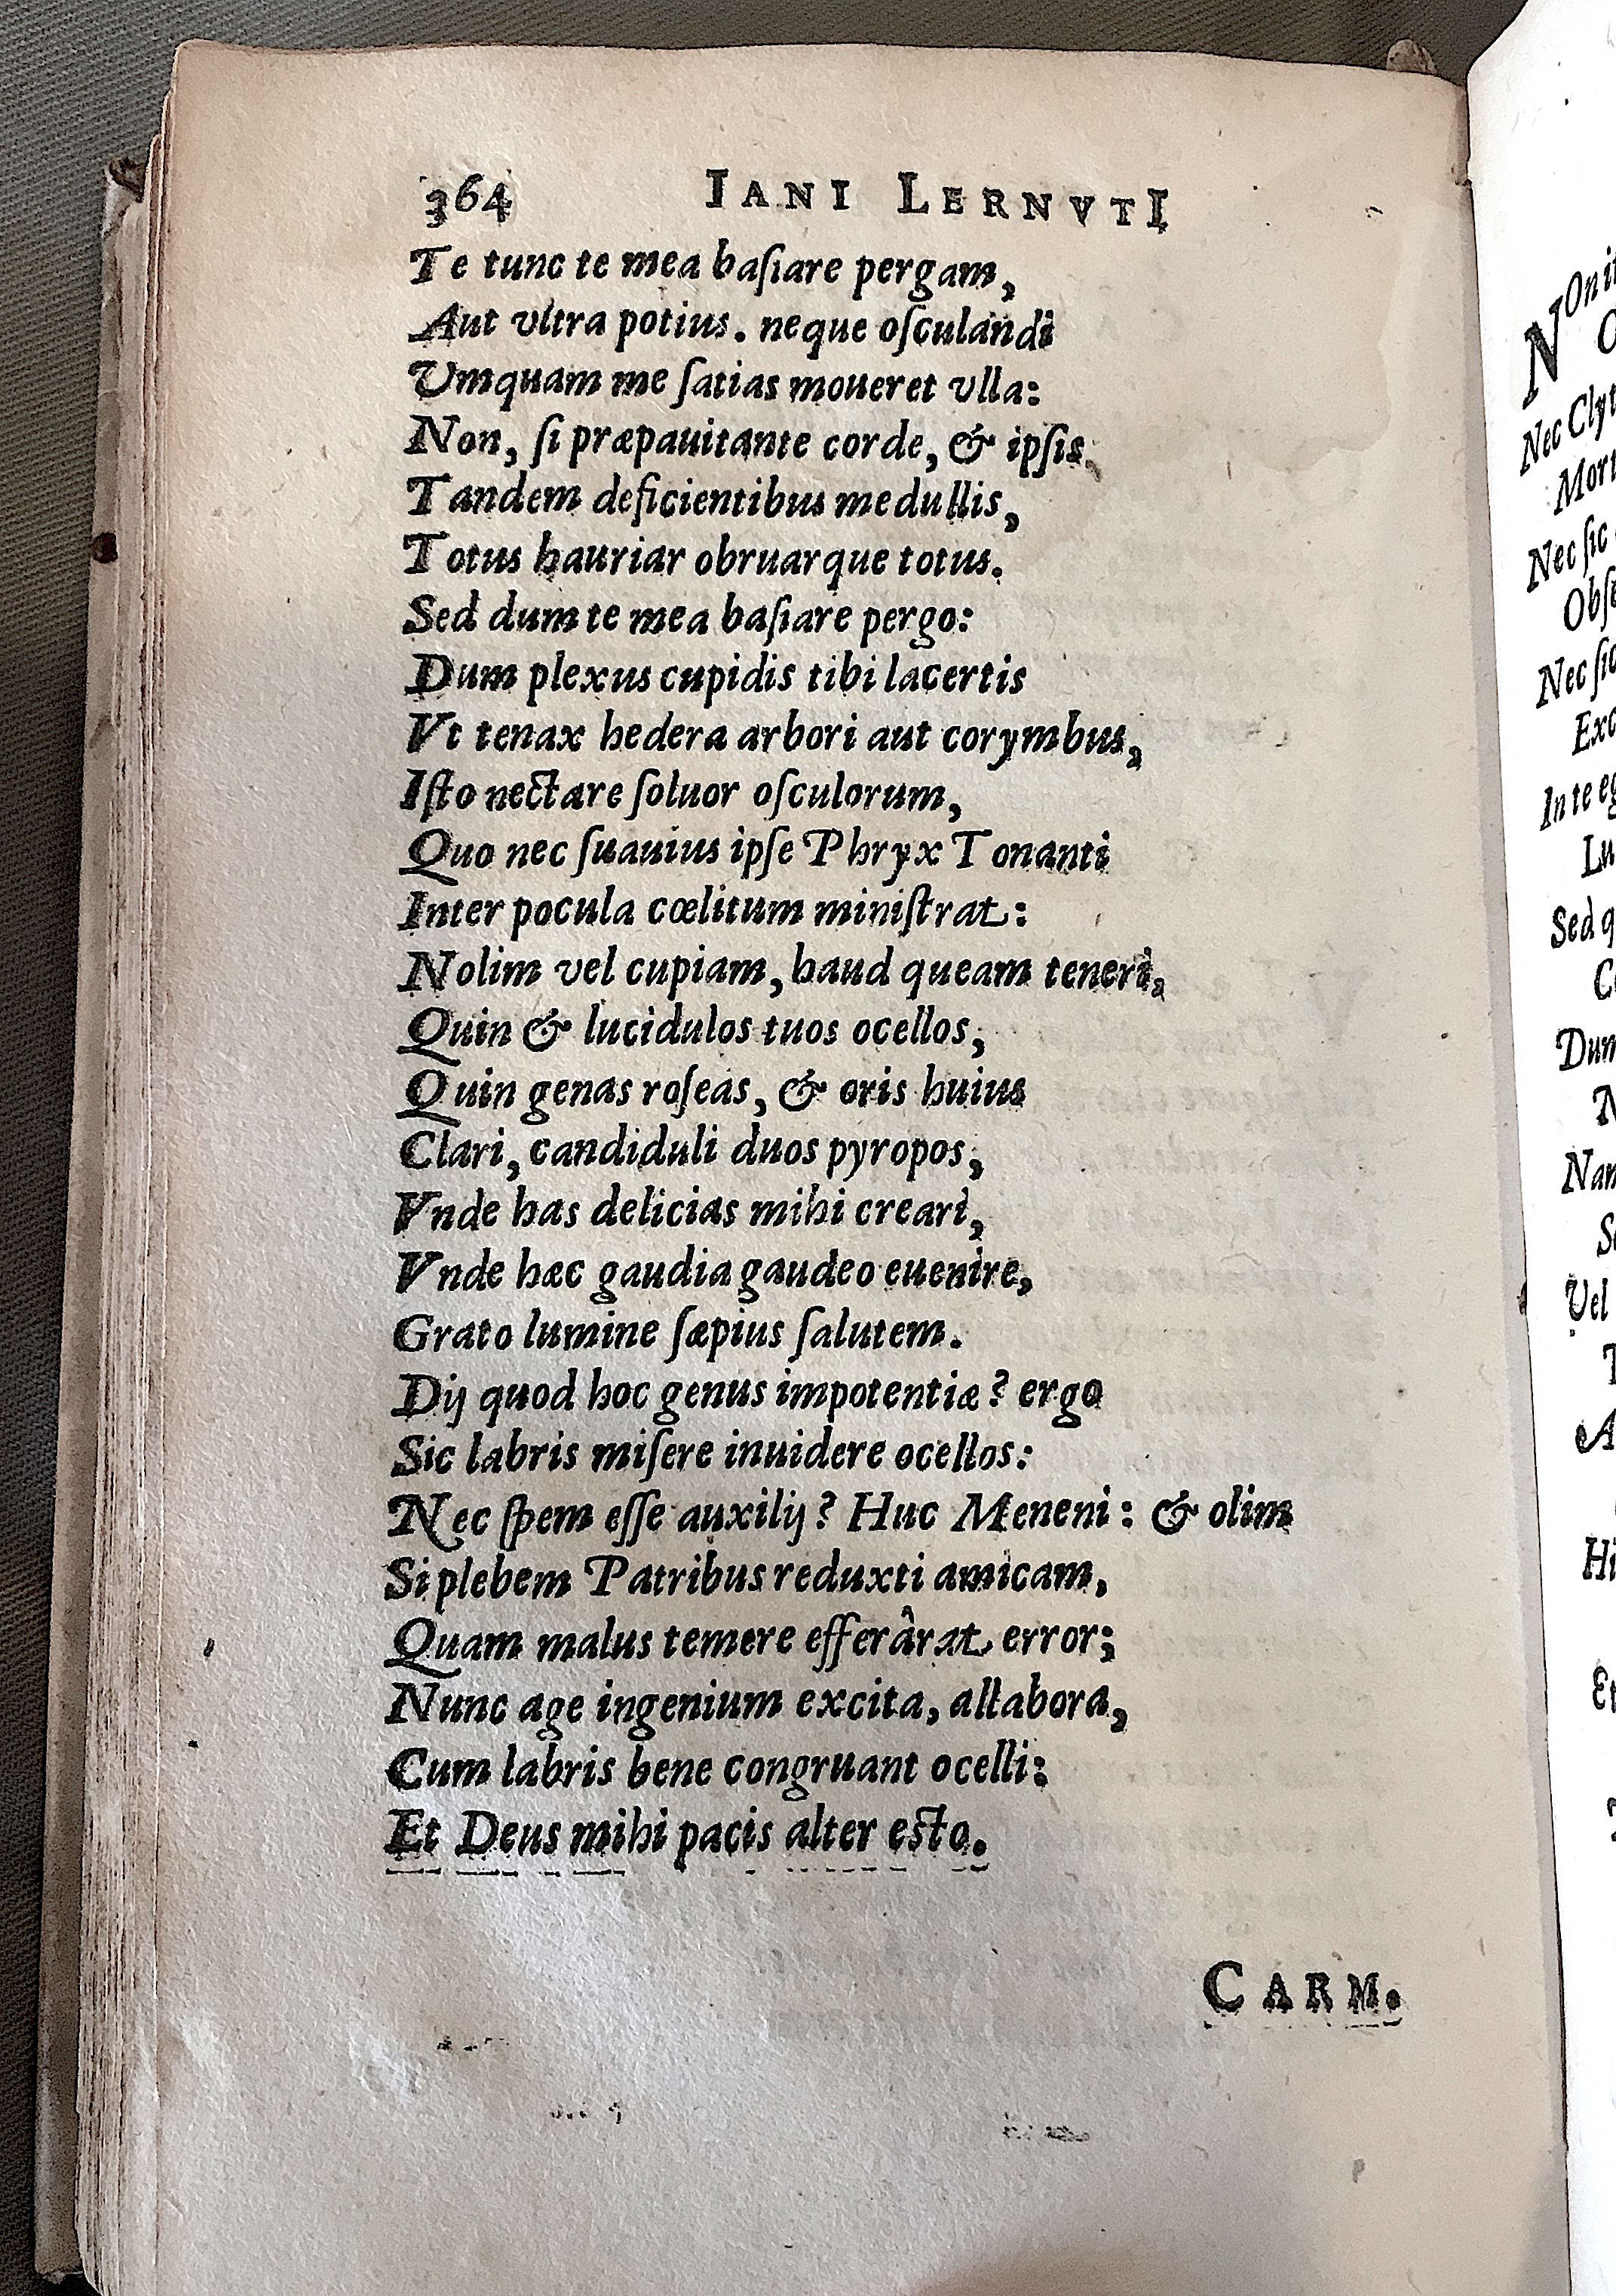 364 IANI LERNVTI
Te tunc te mea baſiare pergam,
Aut vltra potius. neque oſculandi
Vmquam me ſatias moueret vlla:
Non, ſi præpauitante corde, & ipſis,
Tandem deficientibus medullis,
Totus hauriar obruarque totus.
Sed dum te mea baſiare pergo:
Dum plexus cupidis tibi lacertis
Vt tenax hedera arbori aut corymbus,
Iſto nectare ſoluor oſculorum,
Quo nec ſuauius ipſe Phryx Tonanti
Inter pocula cœlitum miniſtrat:
Nolim vel cupiam, haud queam teneri,
Quin & lucidulos tuos ocellos,
Quin genas roſeas, & oris huius
Clari, candiduli duos pyropos,
Vnde has delicias mihi creari,
Vnde hæc gaudia gaudeo euenire,
Grato lumine ſæpius ſalutem.
Dij quod hoc genus impotentiæ? ergo
Sic labris miſere inuidere ocellos:
Nec ſpem eſſe auxilij? Huc Meneni: & olim
Si plebem Patribus reduxti amicam,
Quam malus temere efferârat error;
Nunc age ingenium excita, allabora,
Cum labris bene congruant ocelli:
Et Deus mihi pacis alter eſto.
CARM.
NOn
Nec Clyt
Mort
Nec ſic
Obſe
Nec ſic
Exc
In te eg
Lu
Sed q
Dum
Nam
Vel